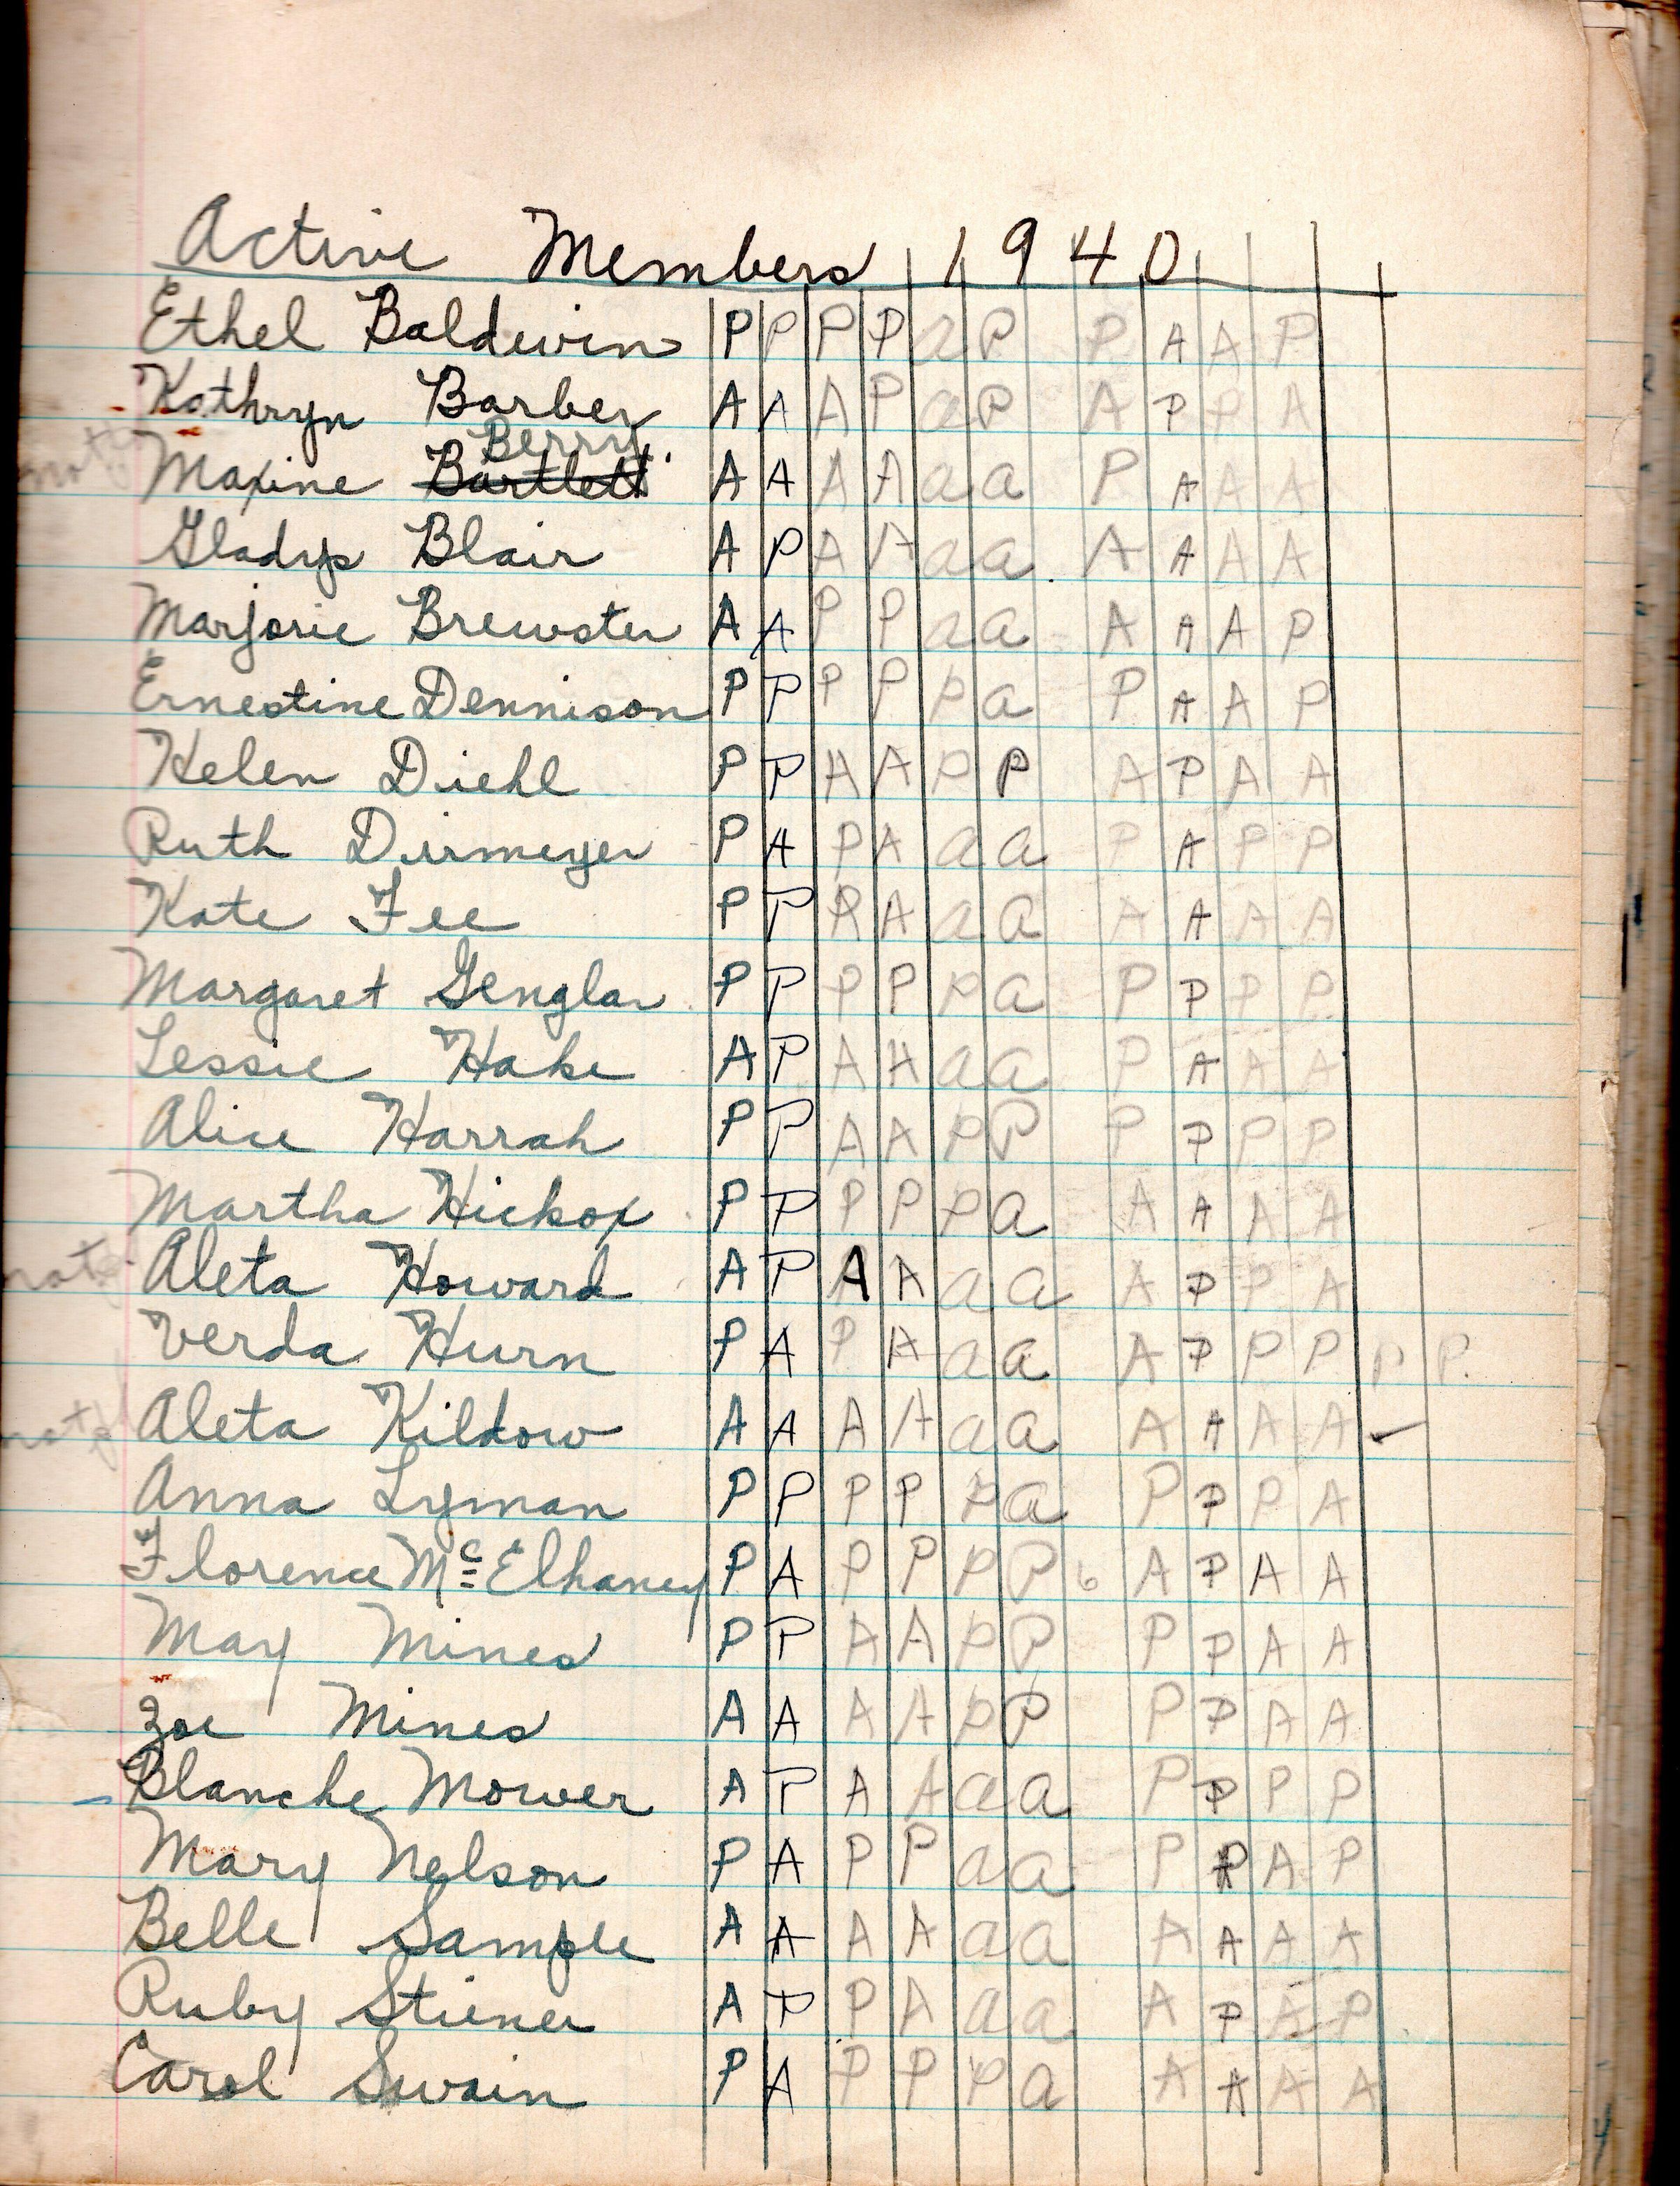 Active Members 1940
Ethel Baldwin P P P P a P P A A P
Kathryn Barber A A A P a P A P P A
Berry
Maxine Bartlett A A A A a a P A A A
Gladys Blair A P A A a a A A A A
Marjorie Brewster A A P P a a A A A P
Ernestine Dennison P P P P P a P A A P
Helen Diehl P P A A P P A P A A
Ruth Dirmeyer P A P A a a P A P P
Kate Fee P P A a a A A A A
Margaret Genglar P P P P P a P P P P
Lessie Hake A P A A a a P A A A
Alice Harrah P P A A P P P P P P
Martha Hickox P P P P P a A A A A
Aleta Howard A P A A a a A P P A
Verda Hurn P A P A a a A P P P P P
Aleta Kildow A A A A a a A A A A
Anna Lyman P P P P P a P P P A
Florence McElhaney P A P P P P 6 A P A A
May Mines P P A A P P P P A A
Zoe Mines A A A A P P P P A A
Blanche Mower A P A A a a P P P P
Mary Nelson P A P P a a P A P
Belle Sample A A A A a a A A A A
Ruby Stiener A P P A a a A P A P
Carol Swain P A P P P a A A A A